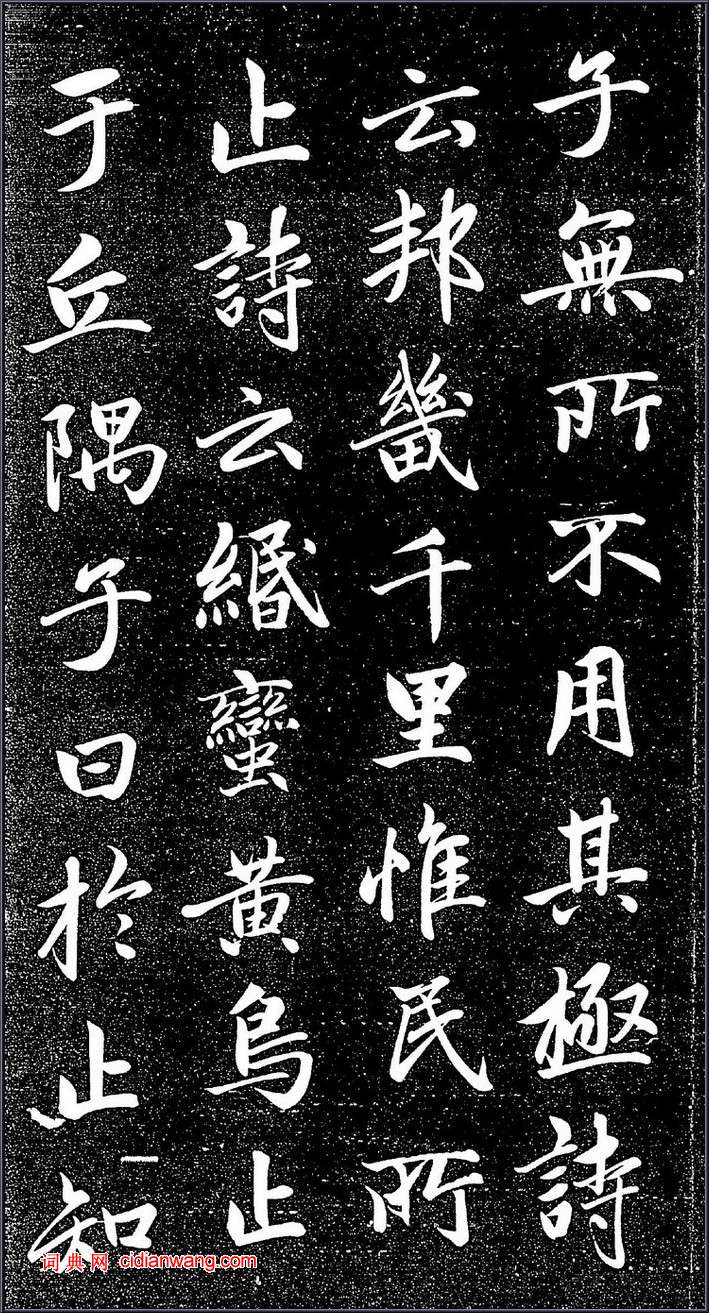 子無所不用其極詩
云邦畿千里惟民所
止詩云緡蠻黃鳥止
于丘隅子曰於止知
词典网 cidianwang.com